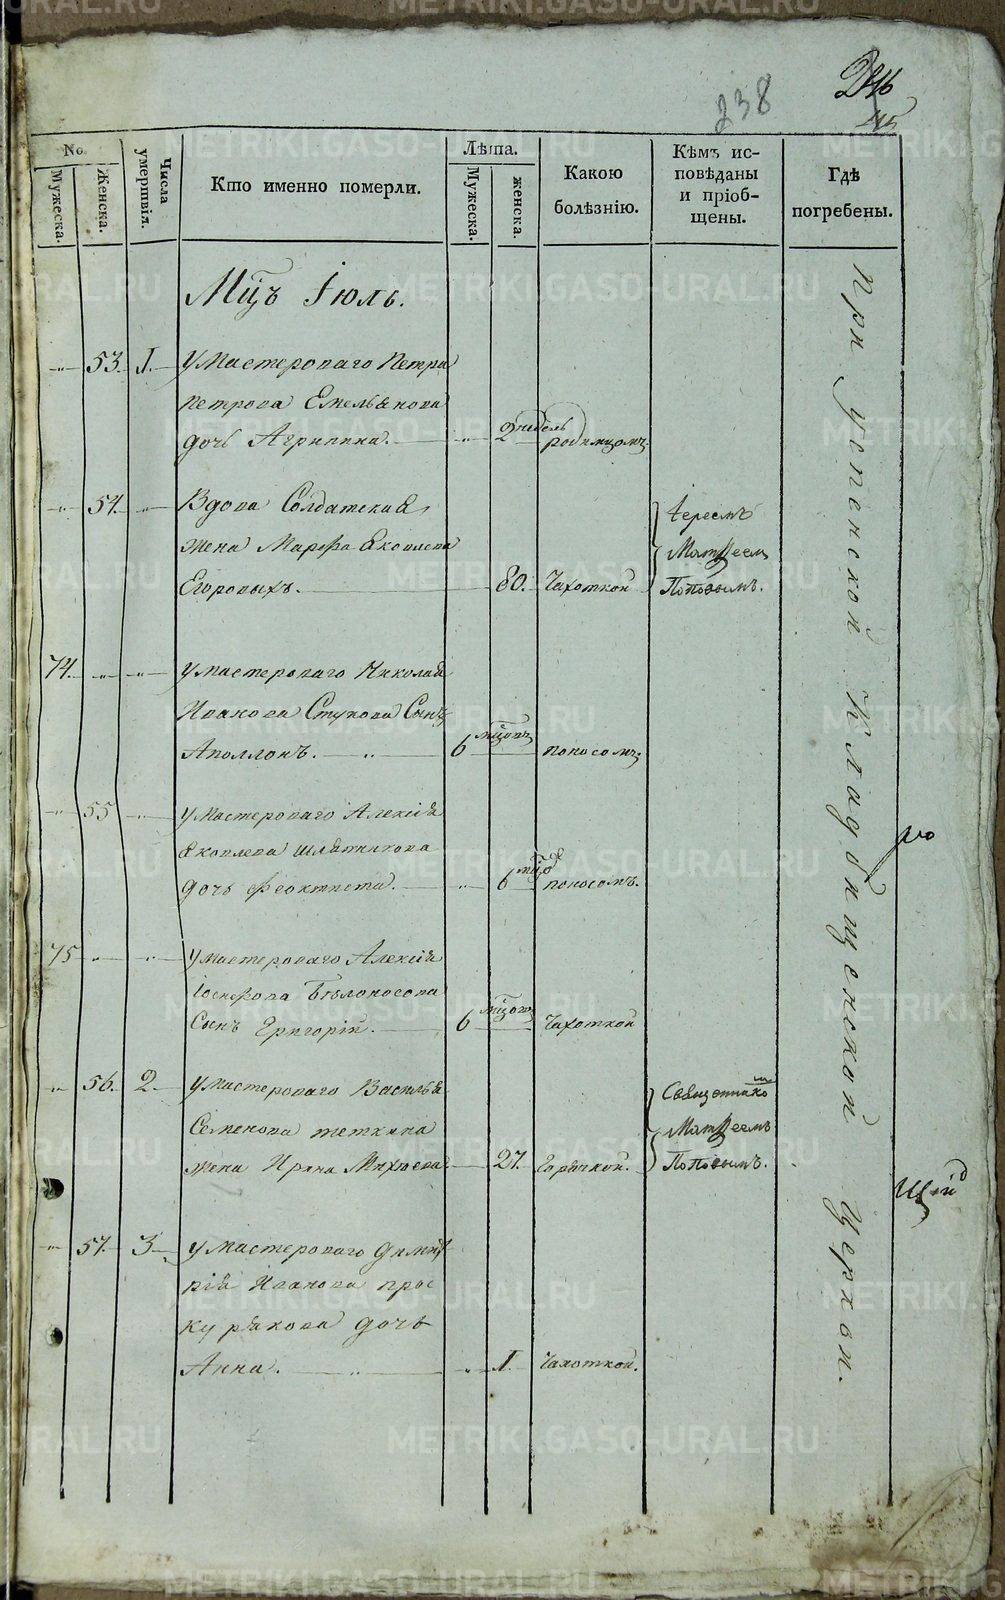 238
246
No.
Мужеска.
Женска.
Числа умертвія.
Кто именно померли.
Лѣта.
Мужеска.
женска.
Какою болѣзнію.
Кѣмъ ис-
повѣданы
и пріоб-
щены.
Гдѣ
погребены.
Мцъ Іюль.
53. 1. У Мастероваго Петра
Петрова Емельянова
дочь Агрипина. 2 недель родимцомъ
54. Вдова Солдатская
жена Марфа Яковлева
Егоровыхъ. 80. Чахоткой
Іереемъ
Матѳеем
Поповымъ.
74. У мастероваго Николая
Иванова Стукова Сынъ
Аполлонъ. 6 мцовъ поносомъ
55 У Мастероваго Алексія
Яковлева Шлятикова
дочь Феоктиста. 6 поносомъ.
75 У мастероваго Алексія
Іосифова Бѣлоносова
Сынъ Григорій. 6 мцовъ Чахоткой
56. 2. У мастероваго Василья
Семенова теткина
жена Ирина 27. Горячкой.
Священнико
Матѳеемъ
Поповымъ.
57. 3 У мастероваго Димит
рія Иванова прос
курякова дочь
Анна. 1. Чахоткой.
При успенской Кладбищенской Церкви.
METRIKI.GASO-URAL.RU